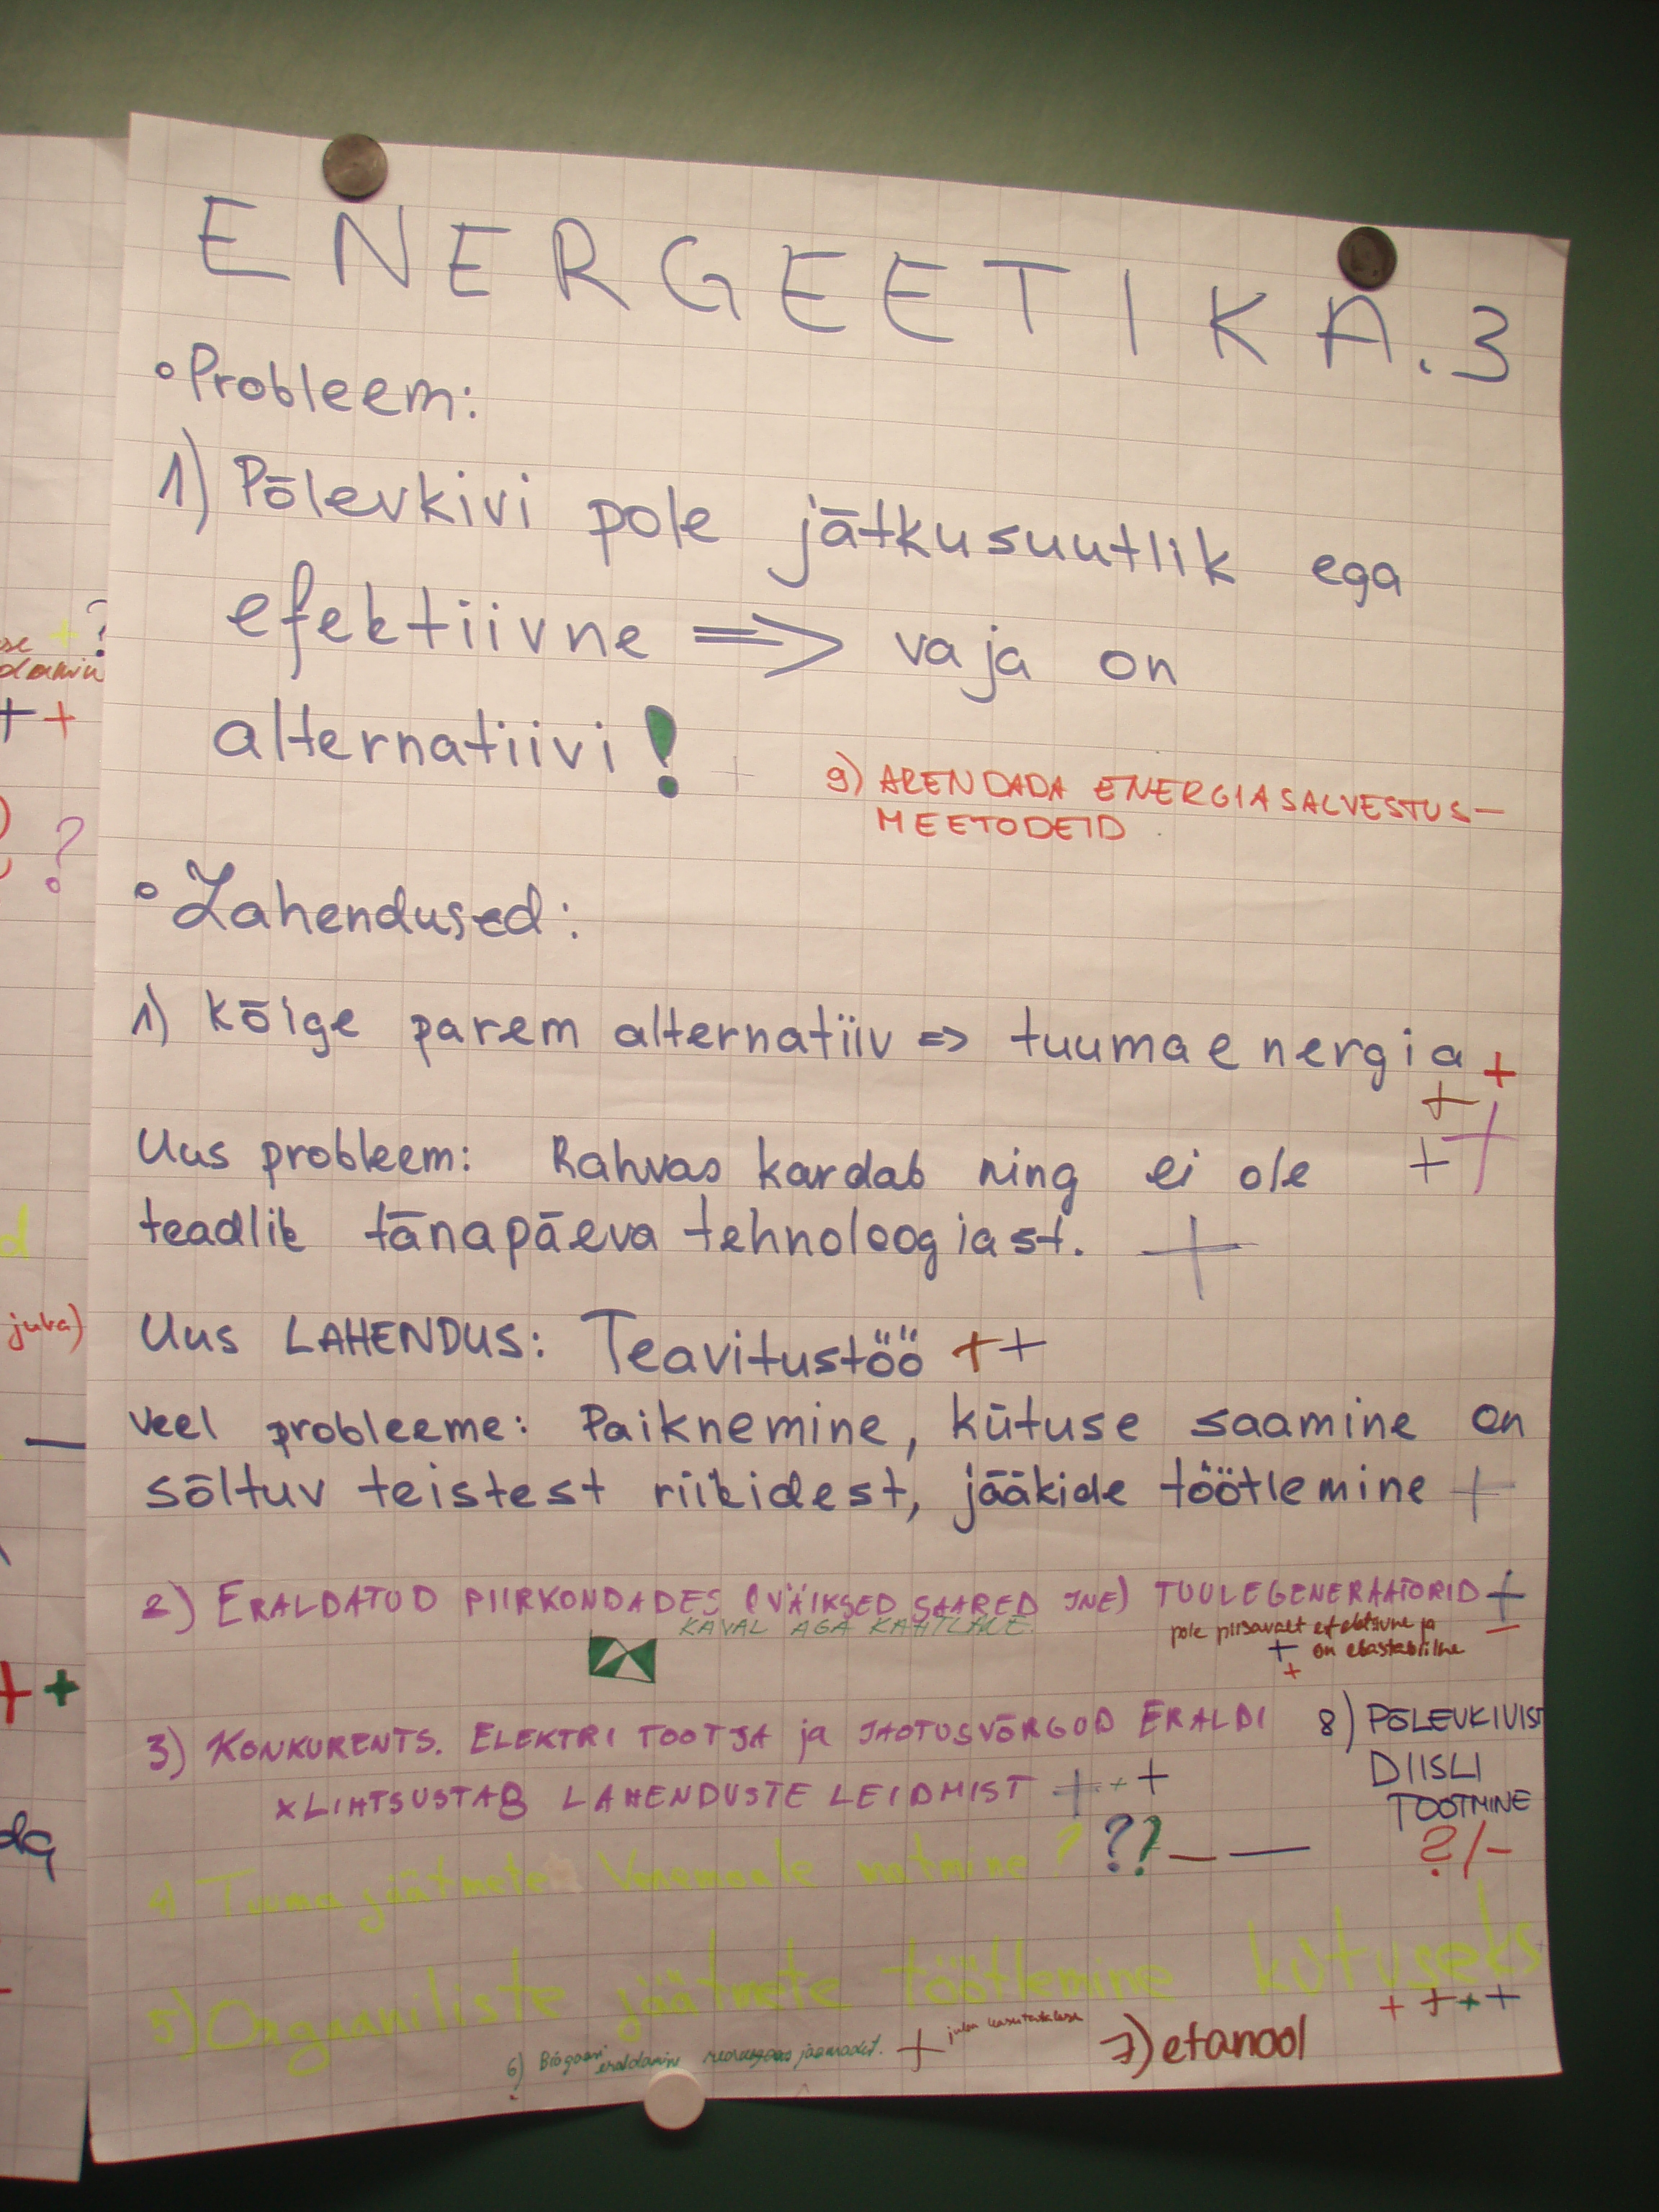 ENERGEETIKA.3
Probleem:
1) Põlevkivi pole jätkusuutlik ega
efektiivne => vaja on
alternatiivi!
9) ARENDADA ENERGIASALVESTUS-
MEETODEID
Lahendused:
1) Kõige parem alternatiiv => tuumaenergia +
+
+ +
Uus probleem: Rahvas kardab ning ei ole
teadlik tänapäeva tehnoloogiast. +
Uus LAHENDUS: Teavitustöö ++
Veel probleeme: Paiknemine, kütuse saamine on
sõltuv teistest riikidest, jääkide töötlemine +
2) ERALDATUD PIIRKONDADES (VÄIKSED SAARED JNE) TUULEGENERAATORID + -
KAVAL AGA KAHTLANE
pole piisavalt efektiivne ja
+ on ebastabiilne
+
3) KONKURENTS. ELEKTRI TOOTJA ja JAOTUSVÕRGUD ERALDI
x LIHTSUSTAB LAHENDUSTE LEIDMIST + + +
8) PÕLEVKIVIST
DIISLI
TOOTMINE
?/-
4) Tuuma jäätmete Venemaale matmine ? ?? - -
5) Orgaaniliste jäätmete töötlemine kütuseks
+ + + +
6) Biogaasi
eraldamine jaamadest. +
juba kasutatakse
7) etanool
se + ?
++
?
d
juba)
-
++
da